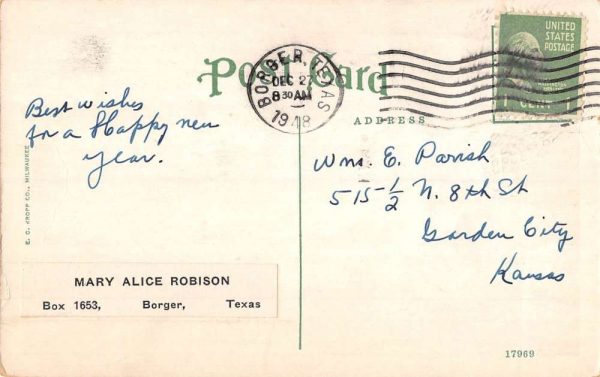 Post Card
BORGER, TEXAS
DEC 27
8 30 AM
1948
UNITED
STATES
POSTAGE
1 CENT 1
ADDRESS
Best wishes
for a Happy new
year.
Wm. E. Parish
515 1/2 N. 8th St
Garden City
Kansas
E. C. KROPP CO., MILWAUKEE
MARY ALICE ROBISON
Box 1653, Borger, Texas
17969